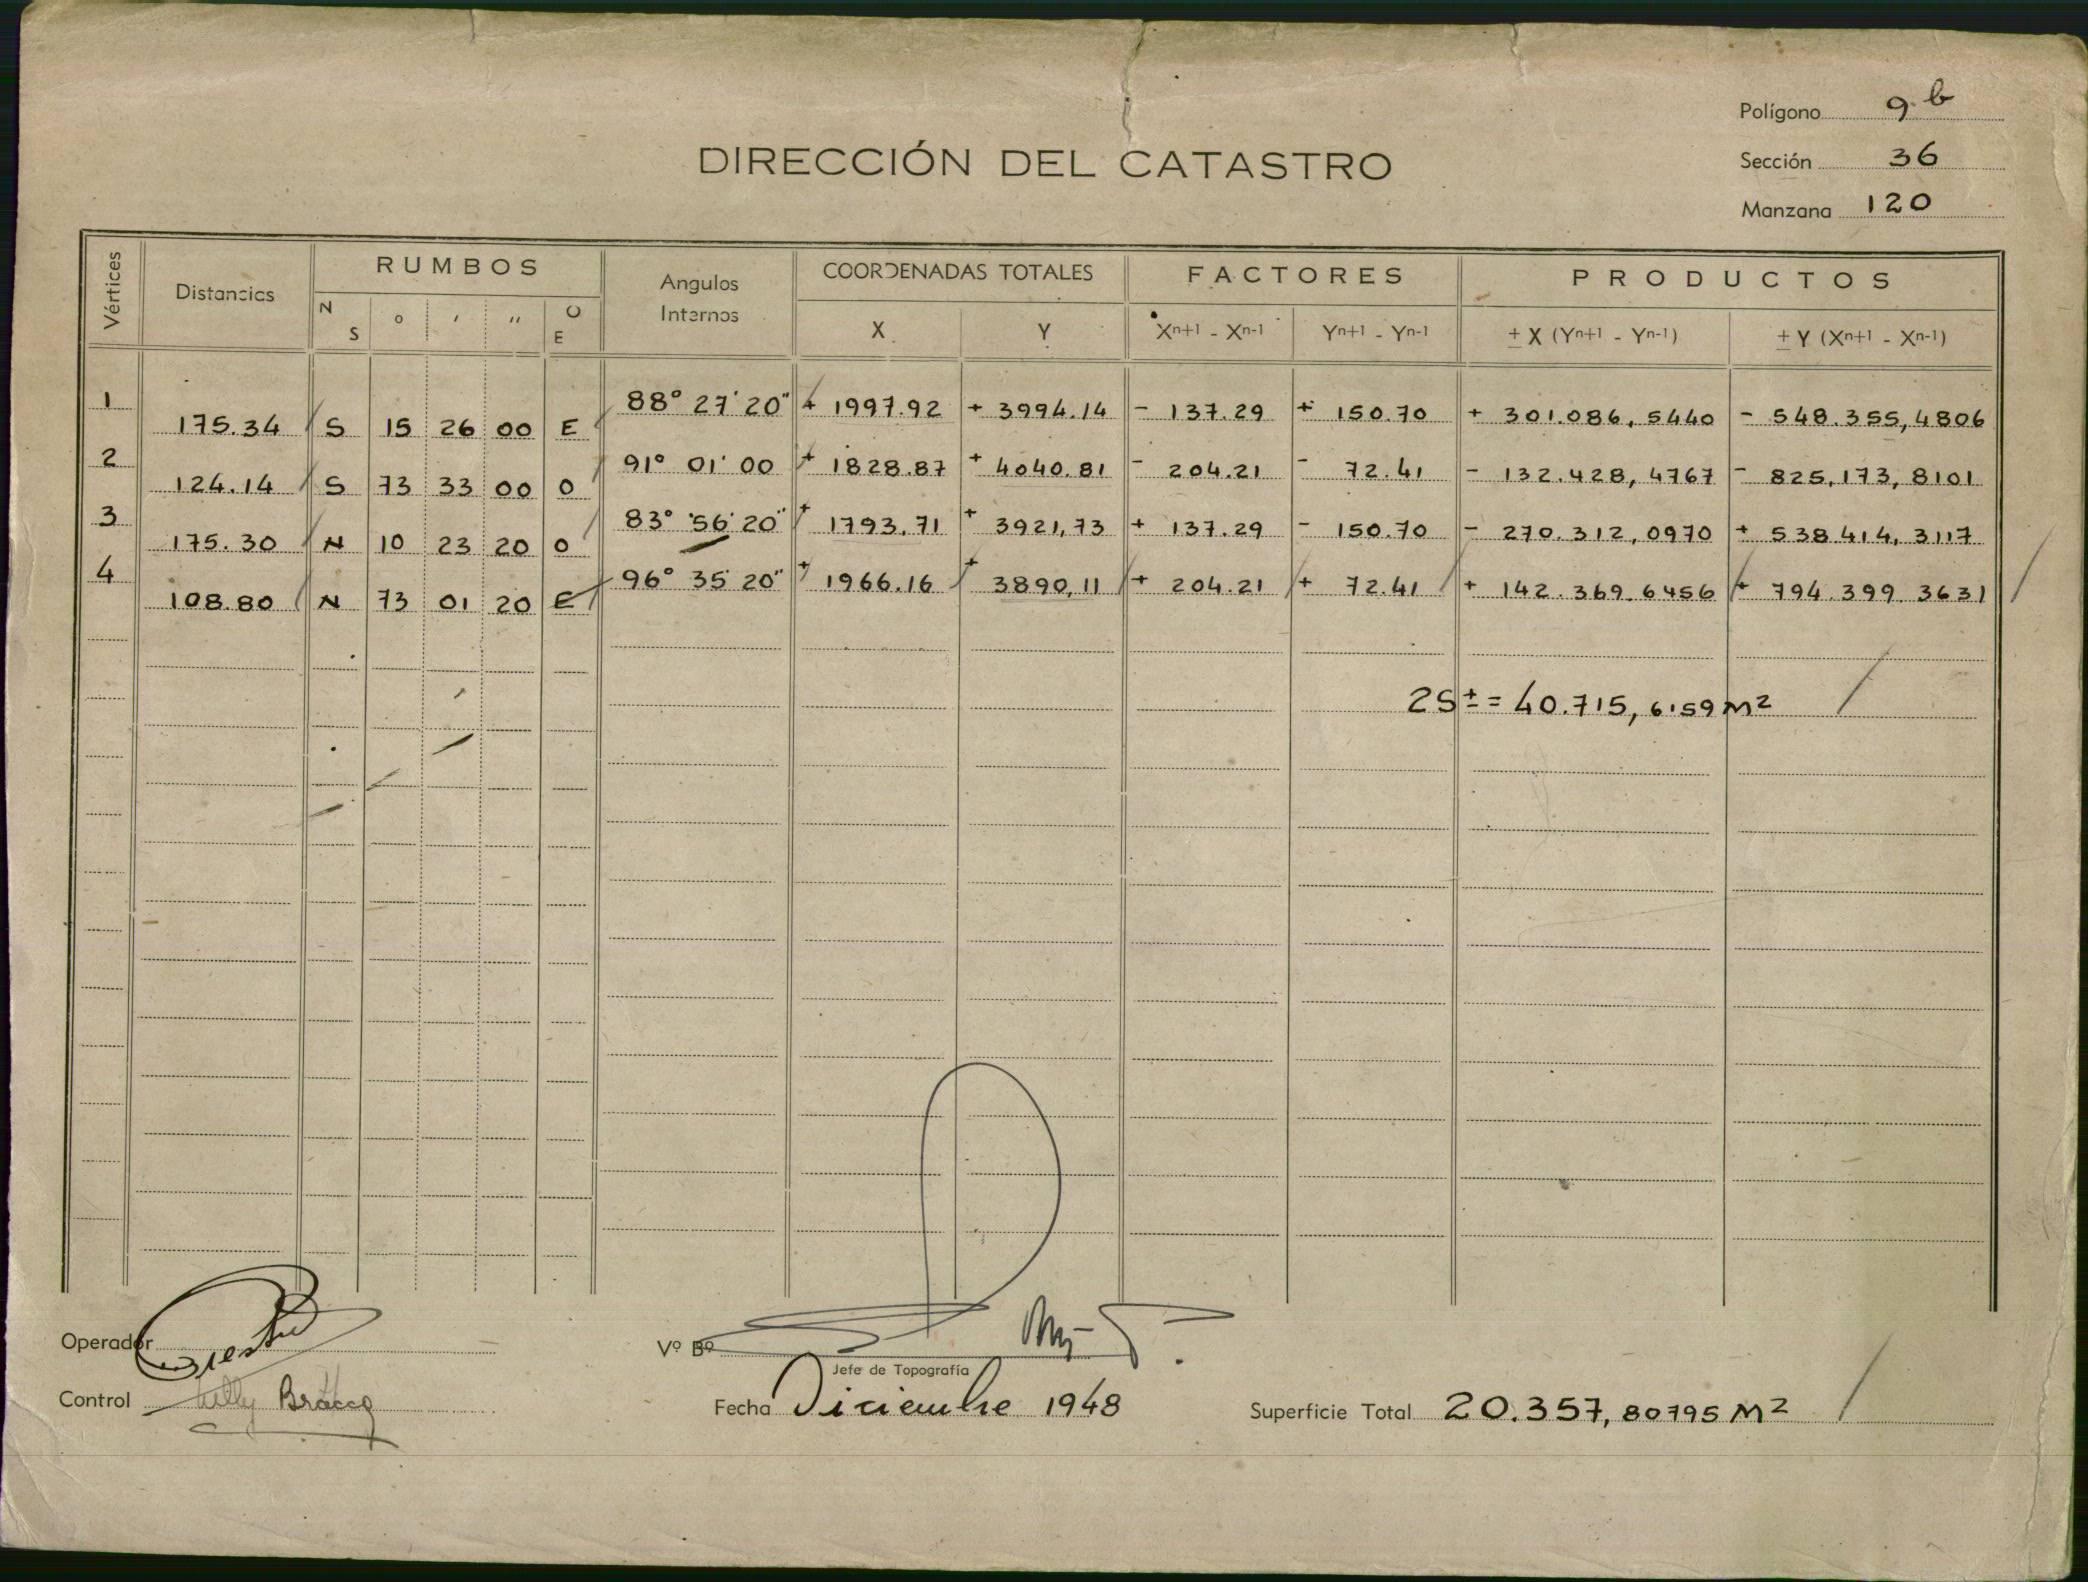 Polígono 9 b
DIRECCIÓN DEL CATASTRO
Sección 36
Manzana 120
Vértices Distancias RUMBOS Angulos Internos COORDENADAS TOTALES FACTORES PRODUCTOS
N S o ' '' O E X Y Xn+1 - Xn-1 Yn+1 - Yn-1 ± X (Yn+1 - Yn-1) ± Y (Xn+1 - Xn-1)
1 88° 27' 20" + 1997.92 + 3994.14 - 137.29 + 150.70 + 301.086,5440 - 548.355,4806
175.34 S 15 26 00 E
2 91° 01' 00 + 1828.87 + 4040.81 - 204.21 - 72.41 - 132.428,4767 - 825,173,8101
124.14 S 73 33 00 O
3 83° 56' 20" + 1793.71 + 3921,73 + 137.29 - 150.70 - 270.312,0970 + 538.414,3117
175.30 N 10 23 20 O
4 96° 35' 20" + 1966.16 + 3890,11 + 204.21 + 72.41 + 142.369.6456 + 794.399.3631
108.80 N 73 01 20 E
2S ± = 40.715,6159 M2
Operador
Vº Bº
Jefe de Topografía
Control Nelly Bracco
Fecha Diciembre 1948
Superficie Total 20.357,80795 M2